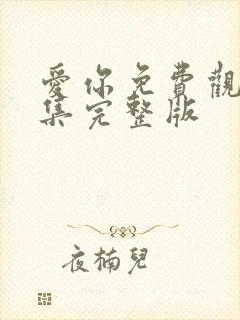 愛你免費觀
集完整版
夜楠兒